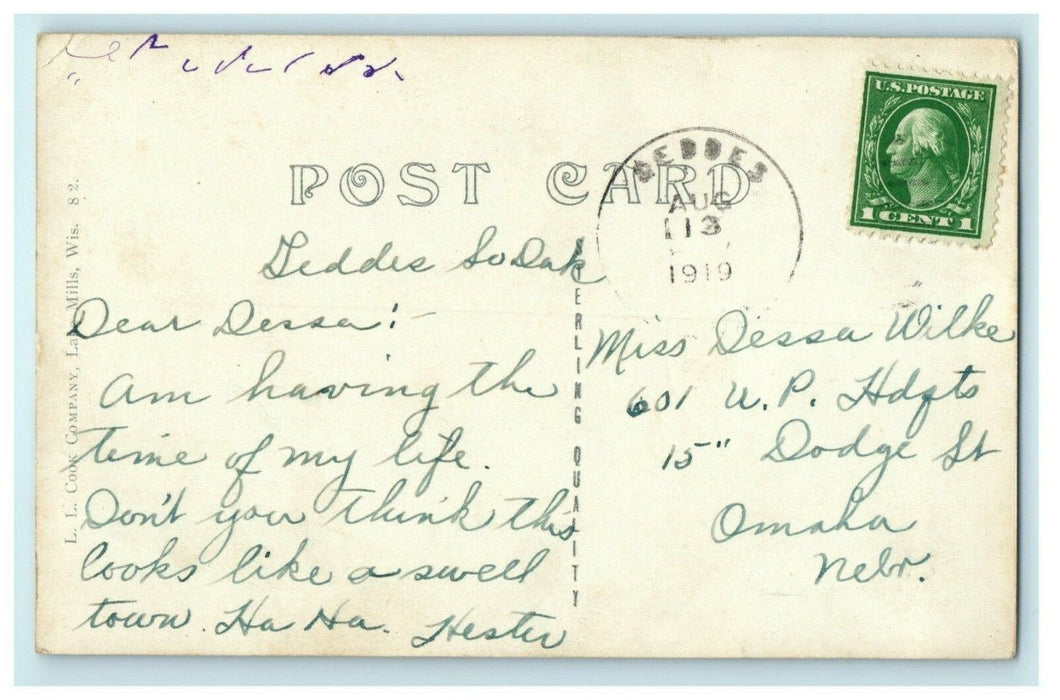 U.S. POSTAGE
1 CENT 1
POST CARD
GEDDES
AUG
13
1919
Geddes So Dak
Dear Dessa!-
Am having the
time of my life.
Don't you think this
looks like a swell
town. Ha Ha. Hester
Miss Dessa Wilke
601 U. P. Hdqts
15" Dodge St
Omaha
Nebr.
STERLING QUALITY
L. L. COOK COMPANY, Lake Mills, Wis. 82.